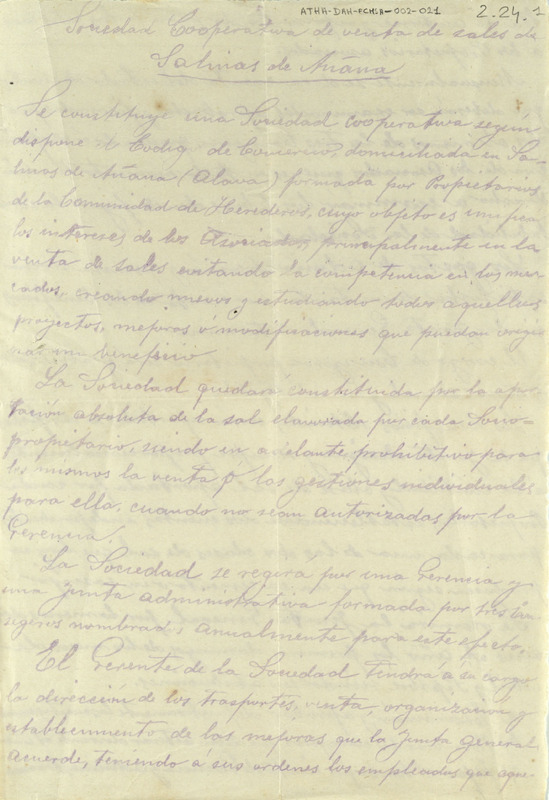 ATHA-DAH-FCMSA-002-021
2.24.1
Sociedad Cooperativa de venta de sales de
Salinas de Añana
Se constituye una Sociedad cooperativa según
dispone el Codig de Comercio, domiciliada en Sa-
linas de Añana (Alava) formada por Propietarios
de la Comunidad de Herederos, cuyo objeto es unificar
los intereses de los Asociados, principalmente en la
venta de sales evitando la competencia en los mer-
cados, creando nuevos y estudiando todos aquellos
proyectos, mejoras ó modificaciones que puedan
un beneficio
La Sociedad quedará constituida por la apor-
tación absoluta de la sal elaborada por cada Socio-
propietario, siendo en adelante prohibitivo para
los mismos la venta ó las gestiones individuales
para ella, cuando no sean autorizadas por la
Gerencia.
La Sociedad se regirá por una Gerencia y
una Junta administrativa formada por tres Con
segeros nombrados anualmente para este efecto,
El Gerente de la Sociedad tendrá á su cargo
la direccion de los trasportes, venta, organizacion y
establecimiento de las mejoras que la Junta general
acuerde, teniendo á sus ordenes los empleados que aque-